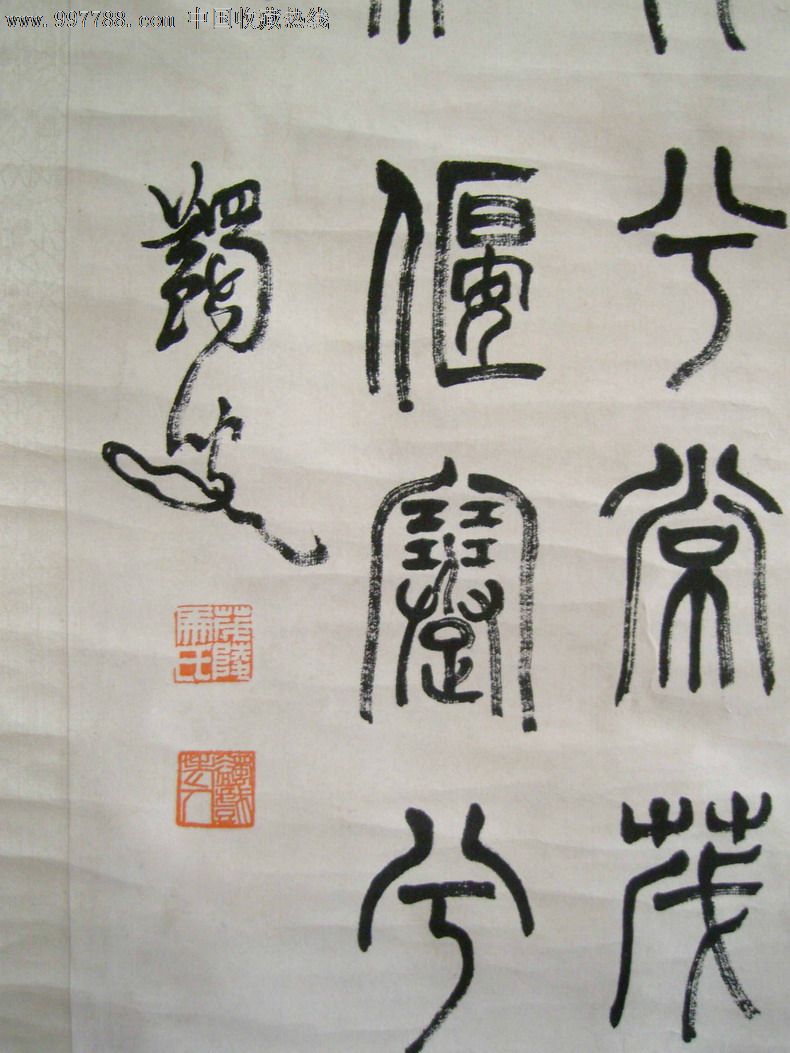 www.997788.com 中国收藏热线
兮常茂
偃蹇兮
蠲叟
蠲戲老人